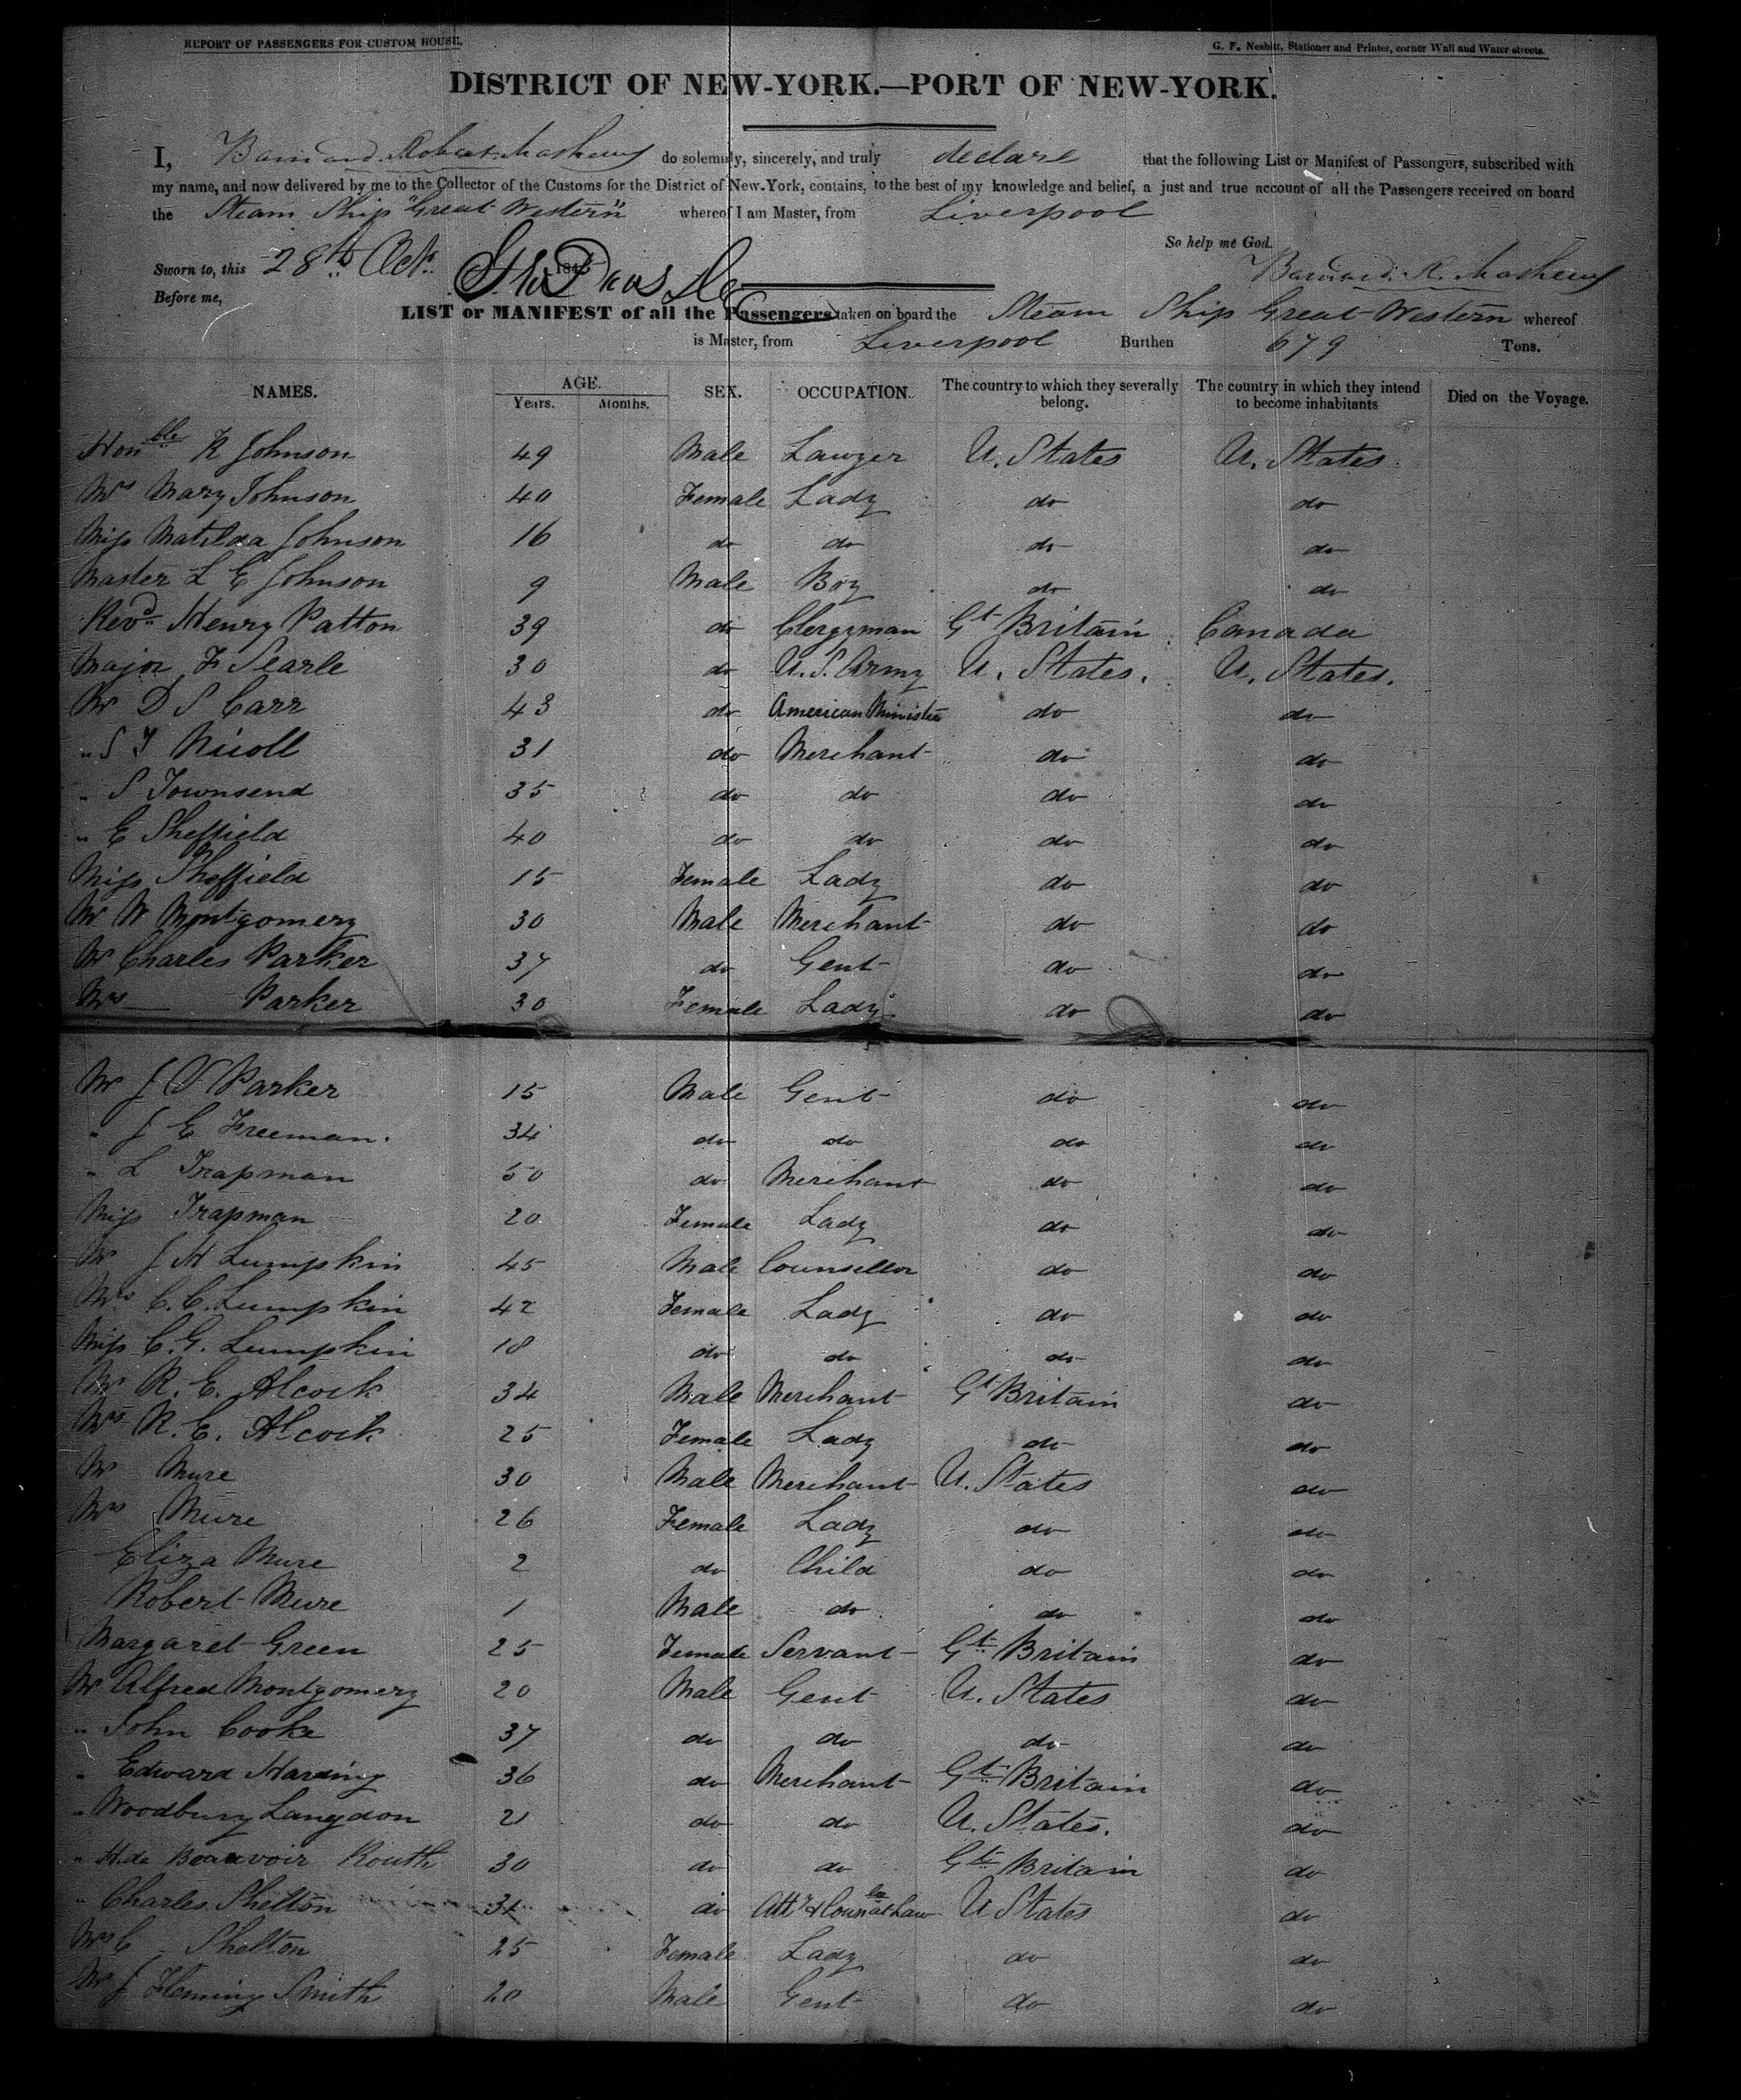 REPORT OF PASSENGERS FOR CUSTOM HOUSE.
G. F. Nesbitt, Stationer and Printer, corner Wall and Water streets.
DISTRICT OF NEW-YORK.—PORT OF NEW-YORK.
I, Barnard Robert Mathews do solemnly, sincerely, and truly declare that the following List or Manifest of Passengers, subscribed with
my name, and now delivered by me to the Collector of the Customs for the District of New-York, contains, to the best of my knowledge and belief, a just and true account of all the Passengers received on board
the Steam Ship "Great Western" whereof I am Master, from Liverpool
So help me God.
Sworn to, this 28th Oct. 184
Barnard. R. Mathews
Before me,
LIST or MANIFEST of all the Passengers taken on board the Steam Ship Great Western whereof
is Master, from Liverpool Burthen 679 Tons.
NAMES. AGE. Years. Months. SEX. OCCUPATION. The country to which they severally belong. The country in which they intend to become inhabitants Died on the Voyage.
Honble R Johnson 49 Male Lawyer U. States U. States.
Mrs Mary Johnson 40 Female Lady do do
Miss Matilda Johnson 16 do do do do
Master L E Johnson 9 Male Boy do do
Revd. Henry Patton 39 do Clergyman Gt Britain Canada
Major F Searle 30 do U.S. Army U. States. U. States.
Mr D S Carr 43 do American Minister do do
" S T Nicoll 31 do Merchant do do
" S Townsend 35 do do do do
" E Sheffield 40 do do do do
Miss Sheffield 15 Female Lady do do
Mr W Montgomery 30 Male Merchant do do
Mr Charles Parker 37 do Gent do do
Mrs — Parker 30 Female Lady do do
Mr J V Parker 15 Male Gent do do
" J E Freeman. 34 do do do do
" L Trapman 50 do Merchant do do
Miss Trapman 20 Female Lady do do
Mr J H Lumpkin 45 Male Counsellor do do
Mrs C. C. Lumpkin 42 Female Lady do do
Miss C. G. Lumpkin 18 do do do do
Mr R. E. Alcock 34 Male Merchant Gt Britain do
Mrs R. E. Alcock 25 Female Lady do do
Mr Mure 30 Male Merchant U. States do
Mrs Mure 26 Female Lady do do
Eliza Mure 2 do Child do do
Robert Mure 1 Male do do do
Margaret Green 25 Female Servant Gt. Britain do
Mr Alfred Montgomery 20 Male Gent U. States do
" John Cooke 37 do do do do
" Edward Harding 36 do Merchant Gt. Britain do
" Woodbury Langdon 21 do do U. States. do
" H. de Beauvoir Routh 30 do do Gt. Britain do
" Charles Shelton do Atty & Counslr at Law U States do
Mrs C Shelton 25 Female Lady do do
Mr J Fleming Smith 20 Male Gent do do